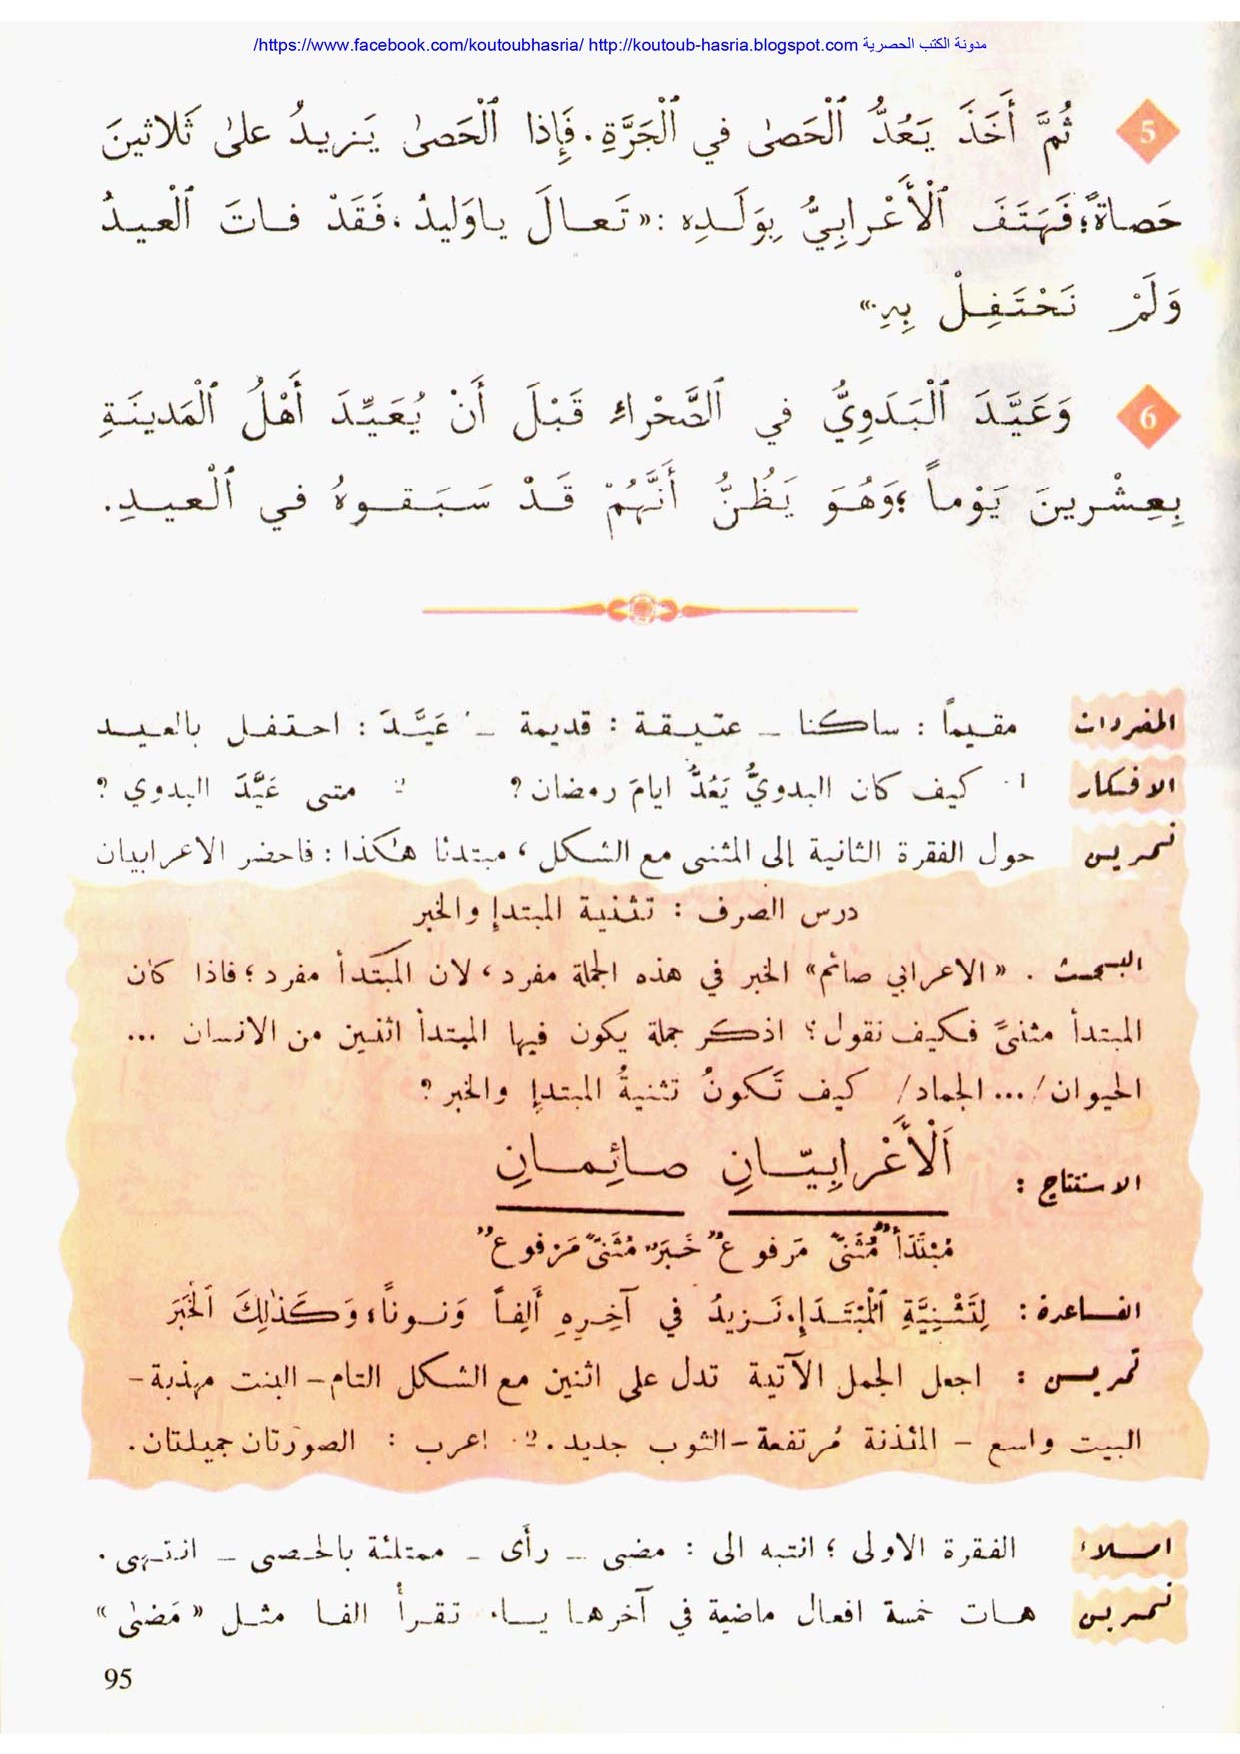 /https://www.facebook.com/koutoubhasria/ http://koutoub-hasria.blogspot.com مدونة الكتب الحصرية
5 ثُمَّ أَخَذَ يَعُدُّ ٱلْحَصىٰ في ٱلْجَرَّةِ. فَإِذا ٱلْحَصىٰ يَزيدُ علىٰ ثَلاثينَ
حَصاةً؛ فَهَتَفَ ٱلْأَعْرابِيُّ بِوَلَدِه :« تَعالَ ياوَليدُ. فَقَدْ فاتَ ٱلْعيدُ
وَلَمْ نَحْتَفِلْ بِهِ.»
6 وَعَيَّدَ ٱلْبَدَوِيُّ في ٱلصَّحْراءِ قَبْلَ أَنْ يُعَيِّدَ أَهْلُ ٱلْمَدينَةِ
بِعِشْرينَ يَوْماً ؛وَهُوَ يَظُنُّ أَنَّهُمْ قَدْ سَبَقوهُ في ٱلْعيدِ.
المفردات مقيماً : ساكنا _ عتيقة : قديمة _ عَيَّدَ : احتفل بالعيد
الافكار 1. كيف كان البدويُّ يَعُدُّ ايامَ رمضان ? 2. متى عَيَّدَ البدوي ?
تمرين حول الفقرة الثانية إلى المثنى مع الشكل ، مبتدئا هكذا : فاحضر الاعرابيان
درس الصرف : تثنية المبتدإ والخبر
البحث . « الاعرابي صائم» الخبر في هذه الجملة مفرد ، لان المبتدأ مفرد ؛ فاذا كان
المبتدأ مثنىً فكيف نقول ؟ اذكر جملة يكون فيها المبتدأ اثنين من الانسان ...
الحيوان / ... الجماد/ كيف تَكونُ تثنيةُ المبتدإ والخبر ?
الاستنتاج : اَلْأَعْرابِيّانِ صائِمانِ
مُبْتَدَأٌ مُثَنىًّ مَرفوعٌ خَبَرٌ مُثَنىًّ مَرْفوعٌ
القاعدة : لِتَثْنِيَّةِ ٱلْمُبْتَدَإِ. نَزيدُ في آخِرِهِ أَلِفاً وَنوناً؛ وَكَذٰلِكَ اَلْخَبَرَ
تمرين : اجعل الجمل الآتية تدل على اثنين مع الشكل التام – البنت مهذبة –
البيت واسع – المئذنة مُرتفعة – الثوب جديد . 2. اعرب : الصورتان جميلتان .
املاء الفقرة الاولى ؛ انتبه الى : مضى _ رأَى _ ممتلئة بالحصى _ انتهى .
تمرين هات خمسة افعال ماضية في آخرها ياء تقرأ الفا مثل « مَضىٰ»
95